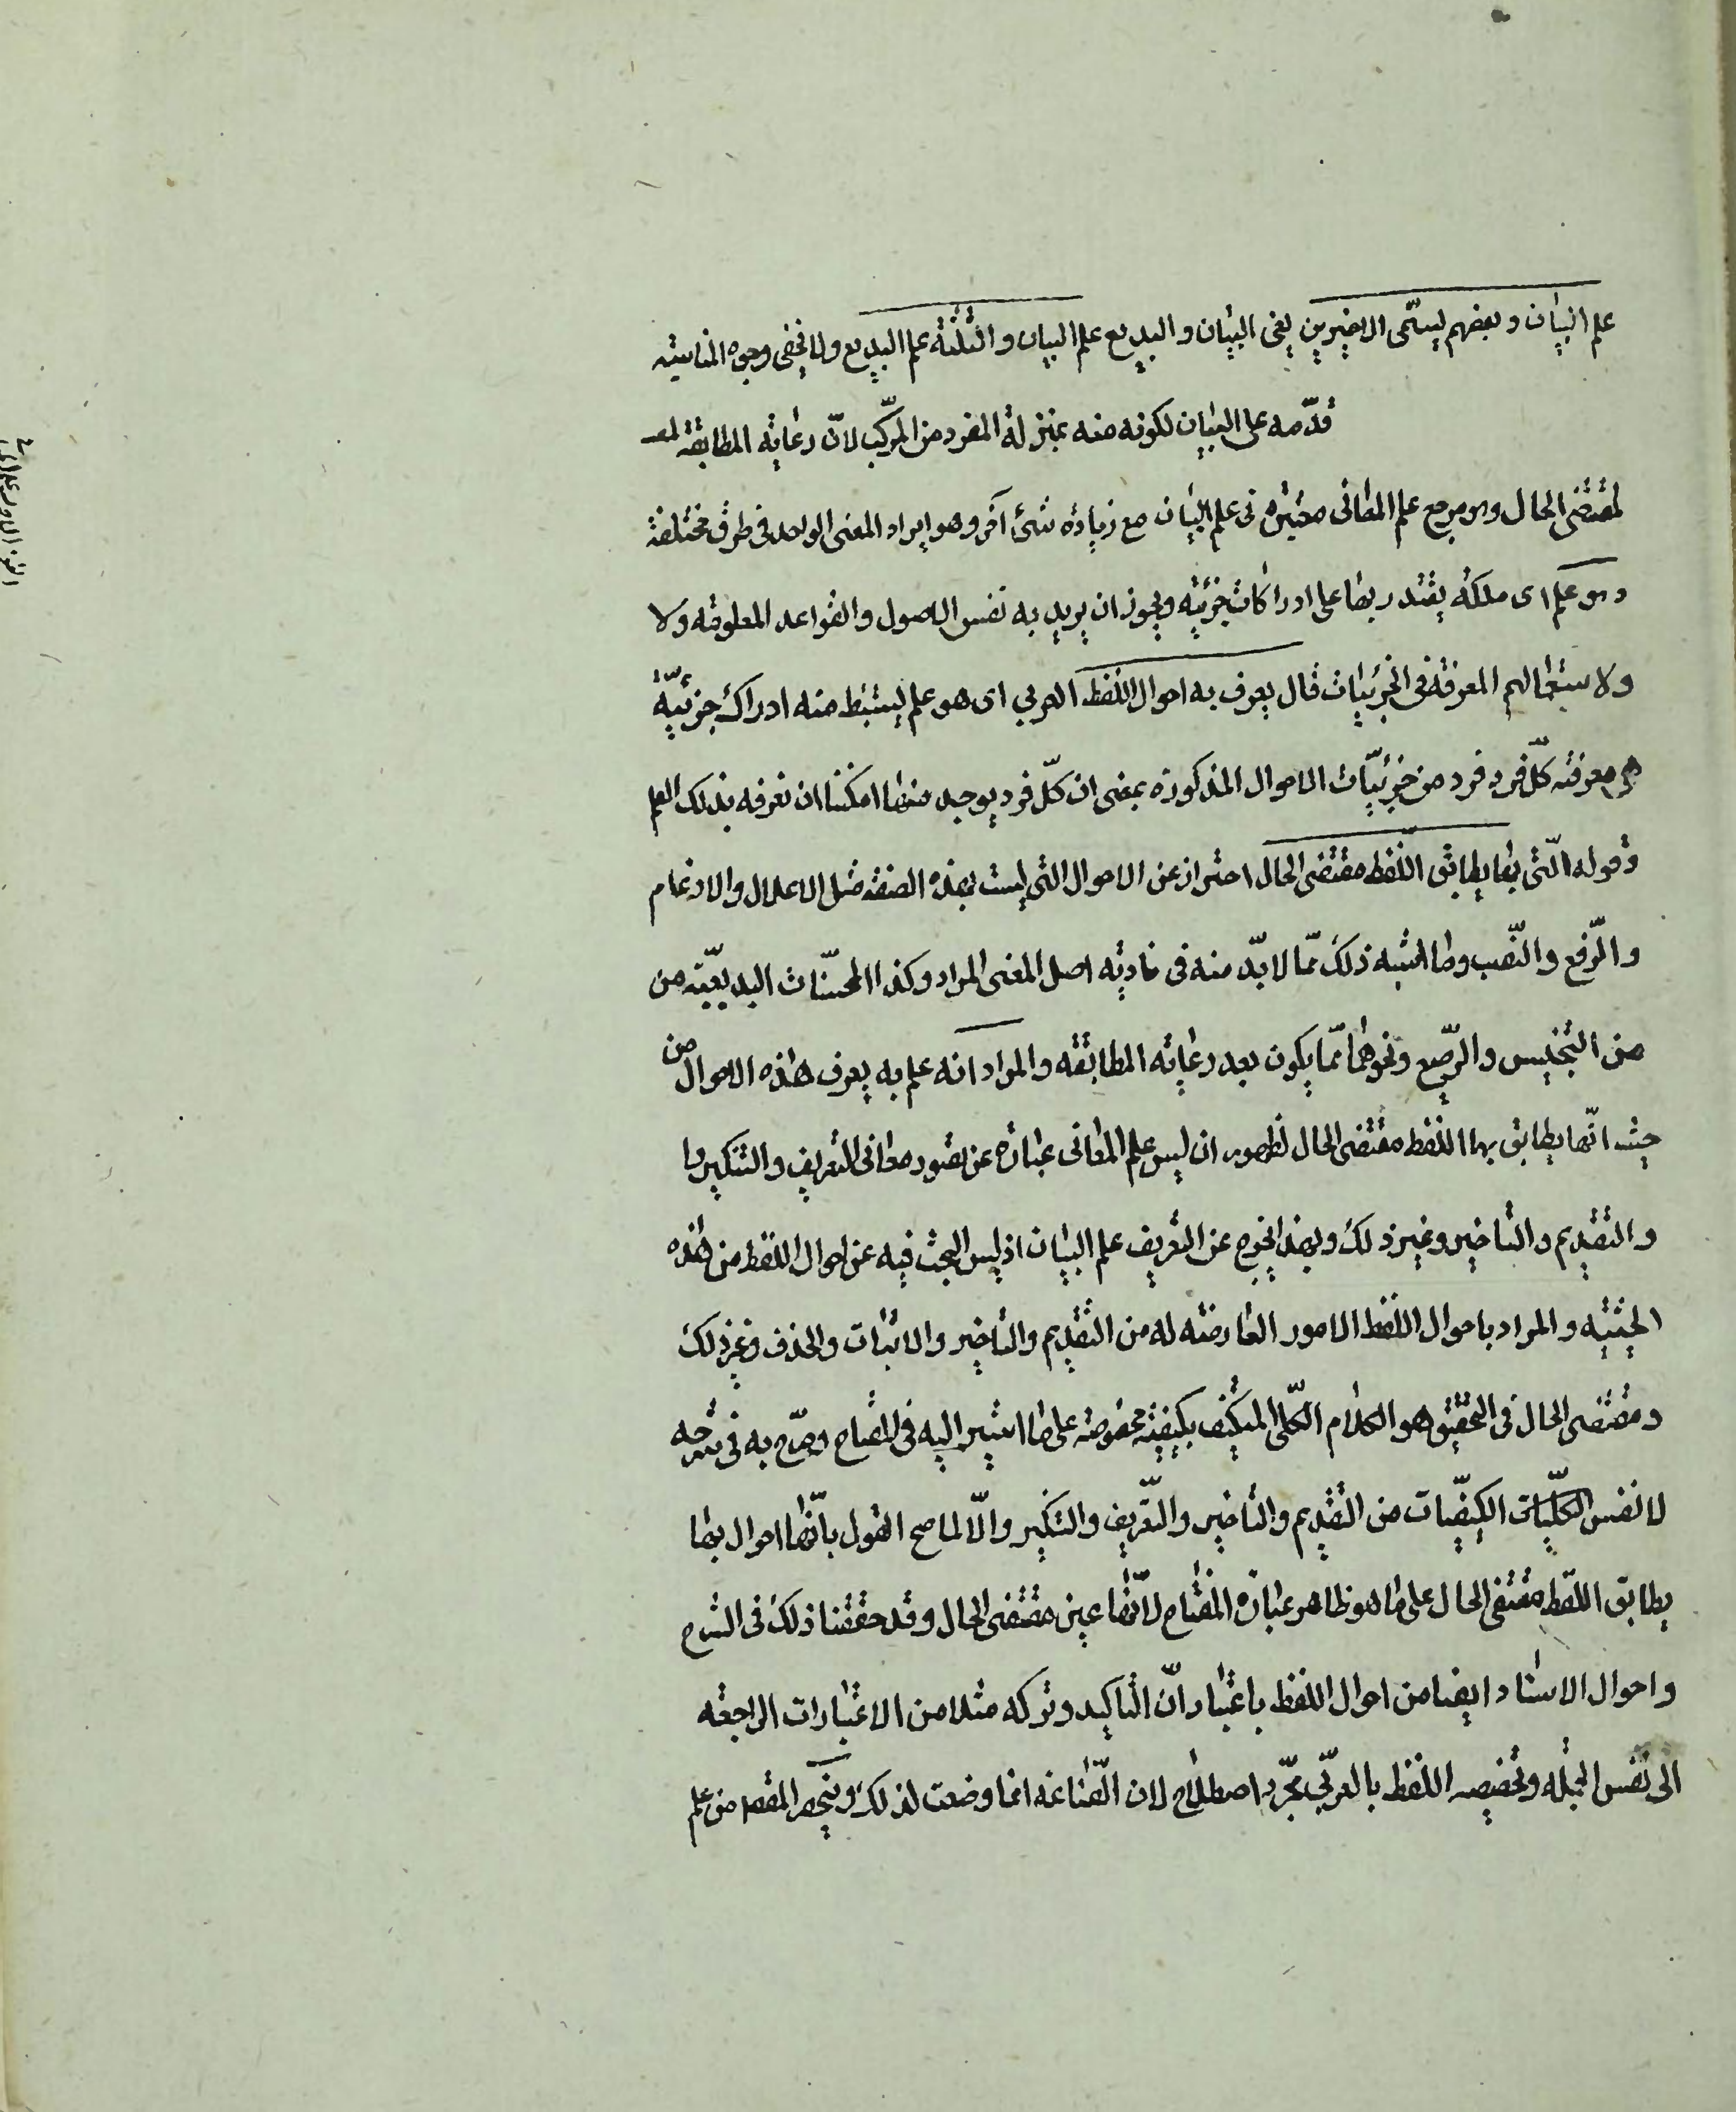 علم البيان وبعضهم يسمّى الاخيرين يعنى البيان والبديع علم البيان والثلثة علم البديع ولا يخفى وجوه المناسبة
قدّمه على البيان لكونه منه بمنزلة المفرد من المركّب لانّ رعاية المطابقة لمعـ
لمقتضى الحال وهو مرجع علم المعانى معتبرة فى علم البيان مع زيادة شىء آخر وهو ايراد المعنى الواحد فى طرق مختلفة
وهو علم اى ملكة يقتدر بها على ادراكات جزئية ويجوز ان يريد به نفس الاصول والقواعد المعلومة ولا
ولاستعمالهم المعرفة فى الجزئيات قال يعرف به احوال اللفظ العربي اى هو علم يستنبط منه ادراك جزئيّة
هى معرفة كلّ فرد فرد من جزئيّات الاحوال المذكورة بمعنى ان كلّ فرد يوجد منها امكننا ان نعرفه بذلك العلم
وقوله الّتى بها يطابق اللّفظ مقتضى الحال احتراز عن الاحوال التى ليست بهذه الصفة مثل الاعلال والادغام
والرّفع والنّصب وما اشبه ذلك ممّا لابدّ منه فى تادية اصل المعنى المراد وكذا المحسّنات البديعيّة من
من التجنيس والترصيع ونحوهما ممّا يكون بعد رعاية المطابقة والمراد انه علم به يعرف هذه الاحوال من
حيث انّها يطابق بها اللفظ مقتضى الحال لظهور ان ليس علم المعانى عبارة عن تصور معانى التعريف والتنكير و
والتقديم والتاخير وغير ذلك وبهذا يخرج عن التعريف علم البيان اذ ليس البحث فيه عن احوال اللفظ من هذه
الحيثية والمراد باحوال اللفظ الامور العارضة له من التقديم والتاخير والاثبات والحذف وغير ذلك
ومقتضى الحال فى التحقيق هو الكلام الكلّى المتكيّف بكيفيّة مخصوصة على ما اشير اليه فى المفتاح وصرّح به فى شرحه
لا نفس الكلّيات الكيفيّات من التقديم والتاخير والتّعريف والتنكير والّا لما صح القول بانّها احوال بها
يطابق اللّفظ مقتضى الحال على ما هو ظاهر عبارة المفتاح لانّها عين مقتضى الحال وقد حققنا ذلك فى الشرح
واحوال الاسناد ايضا من احوال اللفظ باعتبار انّ التاكيد وتركه مثلا من الاعتبارات الراجعة
الى نفس الجملة وتخصيص اللفظ بالعربّى مجرّد اصطلاح لان الصّناعة انما وضعت لذلك وينحصر المقصد من علم